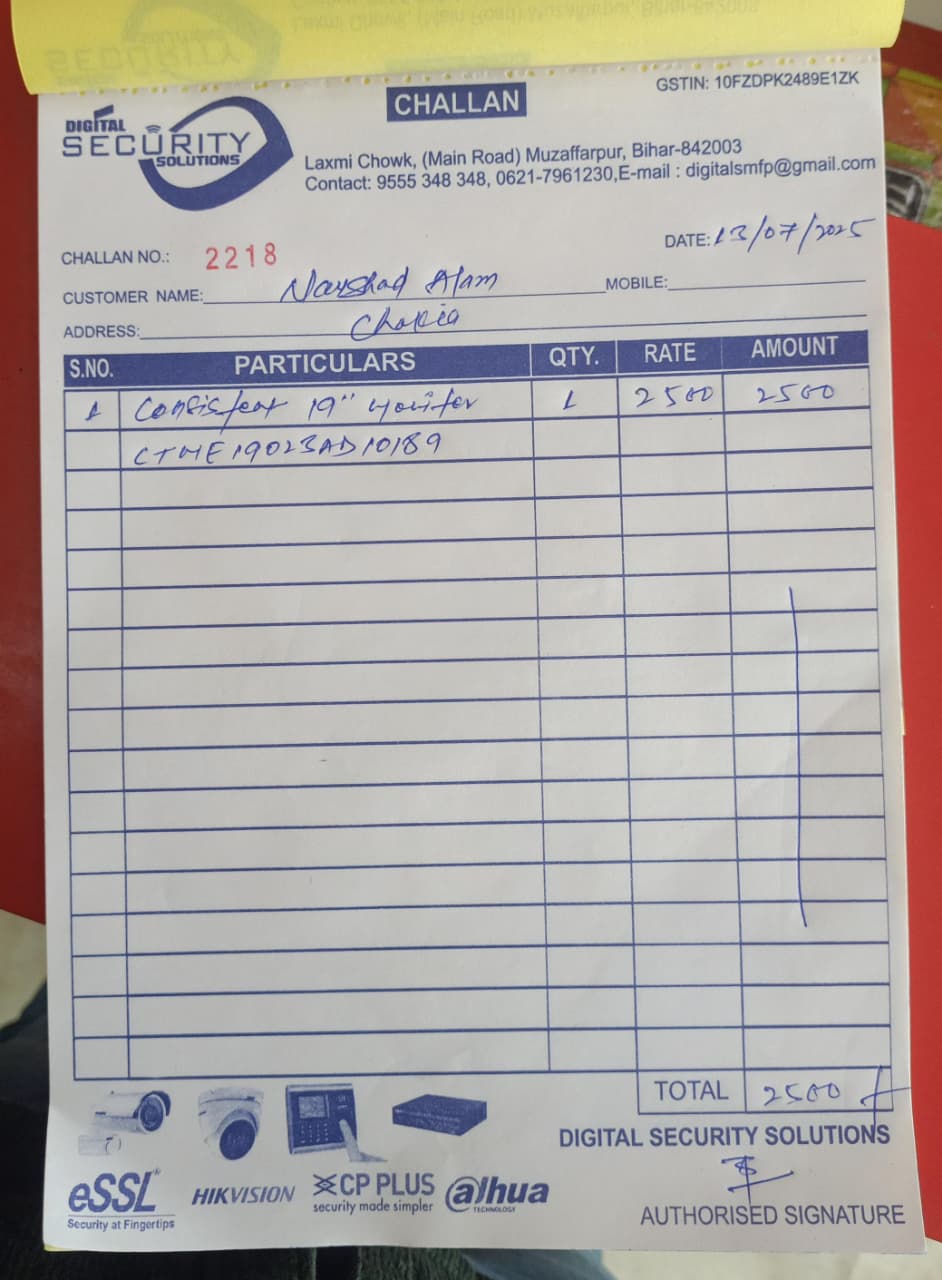 CHALLAN
GSTIN: 10FZDPK2489E1ZK
DIGITAL
SECURITY
SOLUTIONS
Laxmi Chowk, (Main Road) Muzaffarpur, Bihar-842003
Contact: 9555 348 348, 0621-7961230,E-mail : digitalsmfp@gmail.com
CHALLAN NO.: 2218
DATE: 13/07/2025
CUSTOMER NAME: Naushad Alam MOBILE:
ADDRESS: Chakia
S.NO. PARTICULARS QTY. RATE AMOUNT
1 Consistent 19" Monitor 1 2500 2500
CTME19023AD10189
TOTAL 2500
DIGITAL SECURITY SOLUTIONS
AUTHORISED SIGNATURE
eSSL
Security at Fingertips
HIKVISION
CP PLUS
security made simpler
alhua
TECHNOLOGY